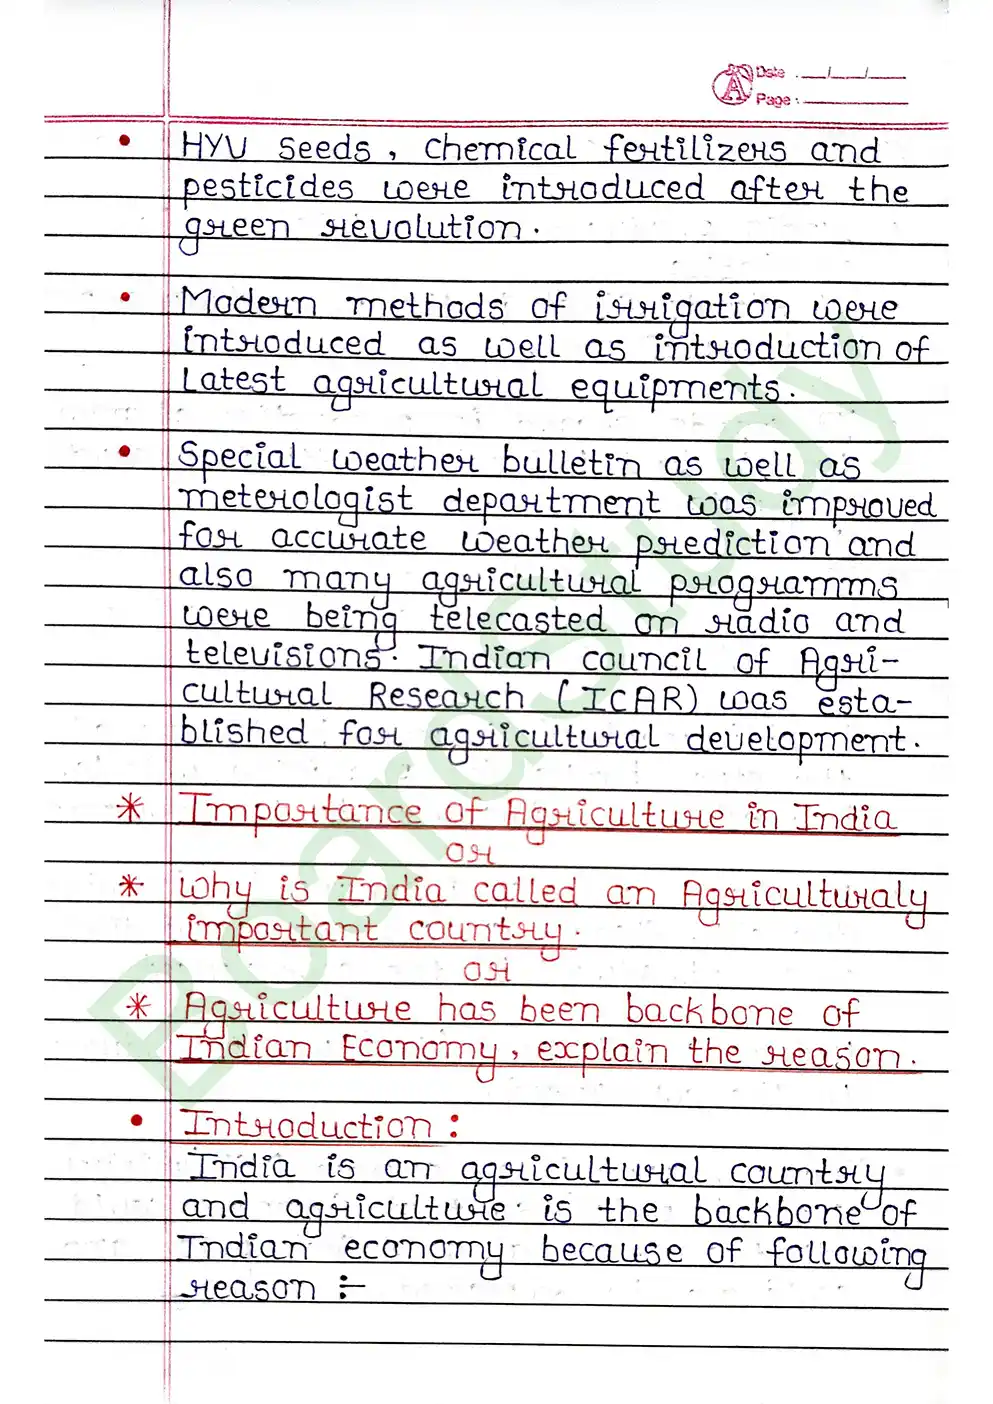 Date : __/__/__
Page :
• HYV seeds, chemical fertilizers and
pesticides were introduced after the
green revolution.
• Modern methods of irrigation were
introduced as well as introduction of
Latest agricultural equipments.
• Special weather bulletin as well as
meterologist department was improved
for accurate weather prediction and
also many agricultural programms
were being telecasted on radio and
televisions. Indian council of Agri-
cultural Research (ICAR) was esta-
blished for agricultural development.
* Importance of Agriculture in India
or
* Why is India called an Agriculturaly
important country.
or
* Agriculture has been backbone of
Indian Economy, explain the reason.
• Introduction :
India is an agricultural country
and agriculture is the backbone of
Indian economy because of following
reason :-
BoardStudy